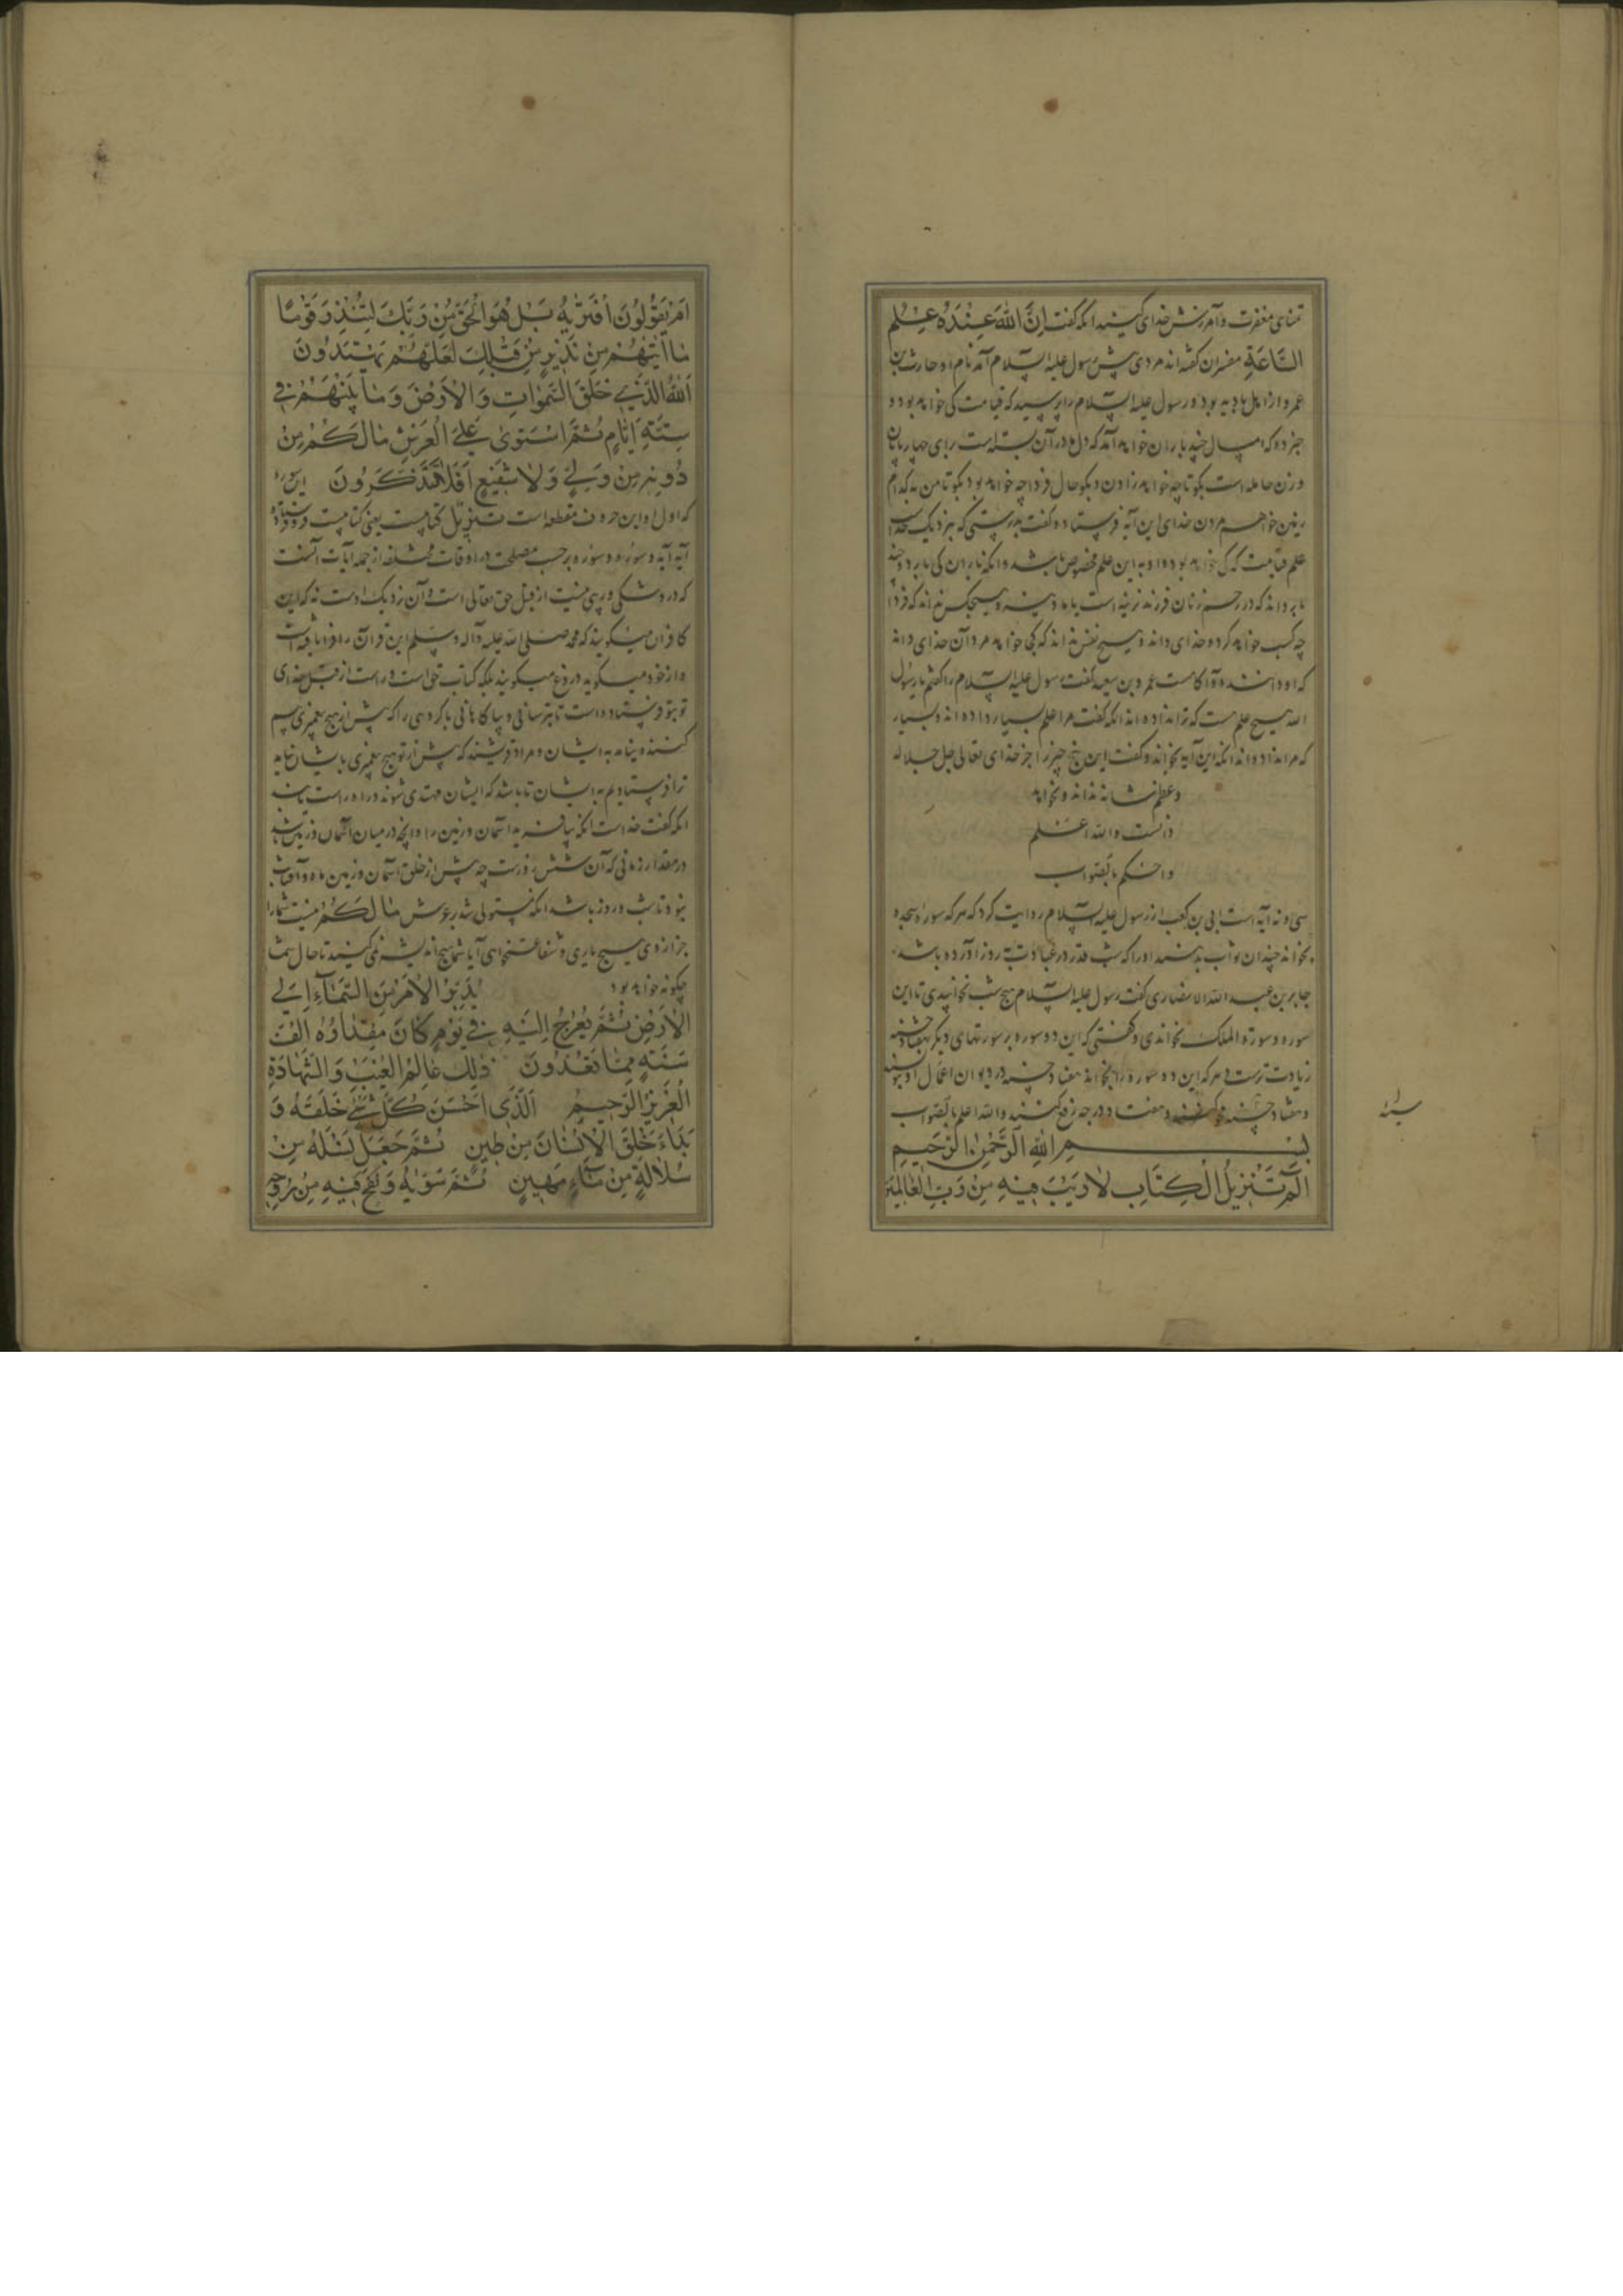 تمنای مغفرت و آمرزش خدای کنید انکه کفت اِنَّ اللّٰهَ عِنْدَهُ عِلْمُ
السَّاعَةِ مفسران کفته اند مردی پیش رسول علیه السلام آمد نام او حارث بن
عمرو از اهل بادیه بود و رسول علیه السلام را پرسید که قیامت کی خواهد بود و
و زن حامله است بکو تا چه خواهد زادن و بکو حال فردا چه خواهد بود بکو تا من به کدام
زمین خواهم مردن خدای این آیه فرستاد و کفت بدرستی که بنزدیک خداست
علم قیامت که کی خواهد بود و او به این علم مخصوص باشد و انکه باران کی بارد و چند
بارد داند که در رحم زنان فرزند نرینه است یا مادینه و هیچکس نداند که فردا
چه کسب خواهد کرد و خدای داند و هیچ نفس نداند که کجا خواهد مردن خدای داند
که او داننده و آکاهست عمرو بن سعید کفت رسول علیه السلام را کفتم یا رسول
الله هیچ علم هست که ترا نداده اند انکه کفت مرا علم بسیار داده اند و بسیار
که مرا نداده اند انکه این آیه بخواند و کفت این پنج چیز را جز خدای تعالی جل جلاله
و عظم شانه نداند و نخواهد
دانست و الله اعلم
و احکم بالصواب
سی و نه آیه است ابی بن کعب از رسول علیه السلام روایت کرد که هر که سوره سجده
بخواند چندان ثواب بدهند او را که شب قدر در عبادت بروز آورده باشد
جابر بن عبد الله الانصاری کفت رسول علیه السلام هیچ شب نخوابیدی تا این
سوره و سورة الملک نخواندی و کفتی که این دو سوره بر سورتهای دیکر بهفتاد حسنه
زیادت ترست و هر که این دو سوره را بخواند هفتاد حسنه در دیوان اعمال او بنویسند
و هفتاد سیئه محو کنند و هفتاد درجه رفع کنند و الله اعلم بالصواب
سیئه
بِسْمِ اللّٰهِ الرَّحْمٰنِ الرَّحِيمِ
الٓمٓ تَنْزِيلُ الْكِتَابِ لَا رَيْبَ فِيهِ مِنْ رَبِّ الْعَالَمِينَ
اَمْ يَقُولُونَ افْتَرٰيهُ بَلْ هُوَ الْحَقُّ مِنْ رَبِّكَ لِتُنْذِرَ قَوْمًا
مَا اَتٰيهُمْ مِنْ نَذِيرٍ مِنْ قَبْلِكَ لَعَلَّهُمْ يَهْتَدُونَ
اَللّٰهُ الَّذِي خَلَقَ السَّمٰوَاتِ وَالْاَرْضَ وَمَا بَيْنَهُمَا فِي
سِتَّةِ اَيَّامٍ ثُمَّ اسْتَوٰى عَلَى الْعَرْشِ مَا لَكُمْ مِنْ
دُونِهِ مِنْ وَلِيٍّ وَلَا شَفِيعٍ اَفَلَا تَتَذَكَّرُونَ این سوره
که اول او این حروف مقطعه است تنزیل کتابیست یعنی کتابیست فرو فرستاده
آیه آیه و سوره سوره بر حسب مصلحت در اوقات مختلفه از جمله آیات آنست
که در و شکی و ریبی نیست از قبل حق تعالی است و آن نزدیک اوست نه که این
کافران میکویند که محمد صلی الله علیه و آله و سلم این قرآن را فرا بافته است
و از خود میکوید دروغ میکویند بلکه کتاب حق است و راست از قبل خدای
تو بتو فرستاده است تا بترسانی و بیاکاهانی باو کروهی را که پیش از تو هیچ پیغمبری بیم
کننده نیامد به ایشان و مراد قریشند که پیش از تو هیچ پیغمبری بایشان نیامد
ترا فرستادیم به ایشان تا باشد که ایشان مهتدی شوند و راه راست یابند
انکه کفت خداست انکه بیافرید آسمان و زمین را و انچه در میان آسمان و زمین باشد
در مقدار زمانی که آن شش روزست چه پیش از خلق آسمان و زمین ماه و آفتاب
نبود تا شب و روز باشد انکه مستولی شد بر عرش مَا لَكُمْ نیست شما را
جز از وی هیچ یاری و شفاعتخواهی آیا شما هیچ اندیشه نمی کنید تا حال شما
چکونه خواهد بود يُدَبِّرُ الْاَمْرَ مِنَ السَّمَآءِ اِلَى
الْاَرْضِ ثُمَّ يَعْرُجُ اِلَيْهِ فِي يَوْمٍ كَانَ مِقْدَارُهُ اَلْفَ
سَنَةٍ مِمَّا تَعُدُّونَ ذٰلِكَ عَالِمُ الْغَيْبِ وَالشَّهَادَةِ
الْعَزِيزُ الرَّحِيمُ اَلَّذِي اَحْسَنَ كُلَّ شَيْءٍ خَلَقَهُ وَ
بَدَاَ خَلْقَ الْاِنْسَانِ مِنْ طِينٍ ثُمَّ جَعَلَ نَسْلَهُ مِنْ
سُلَالَةٍ مِنْ مَآءٍ مَهِينٍ ثُمَّ سَوّٰيهُ وَنَفَخَ فِيهِ مِنْ رُوحِهِ